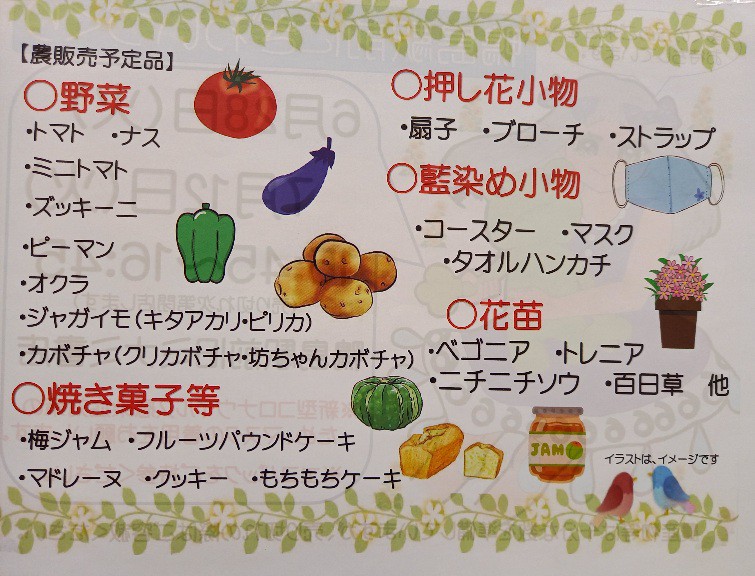 【農販売予定品】
○野菜
・トマト ・ナス
・ミニトマト
・ズッキーニ
・ピーマン
・オクラ
・ジャガイモ(キタアカリ・ピリカ)
・カボチャ(クリカボチャ・坊ちゃんカボチャ)
○焼き菓子等
・梅ジャム ・フルーツパウンドケーキ
・マドレーヌ ・クッキー ・もちもちケーキ
○押し花小物
・扇子 ・ブローチ ・ストラップ
○藍染め小物
・コースター ・マスク
・タオルハンカチ
○花苗
・ベゴニア ・トレニア
・ニチニチソウ ・百日草 他
JAM
イラストは、イメージです